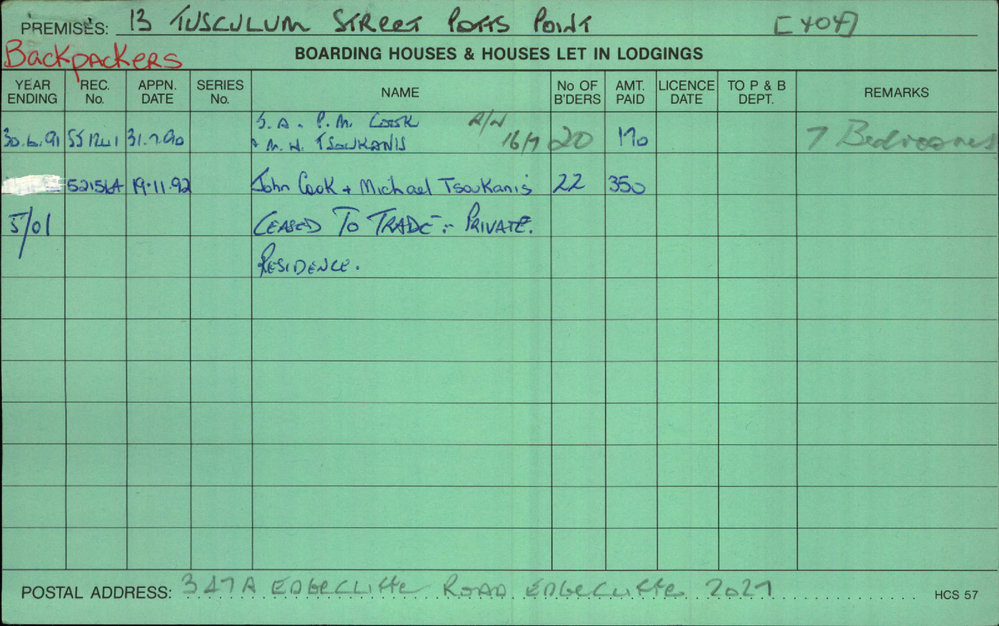 PREMISES: 13 TUSCULUM STREET POTTS POINT [404]
Backpackers
BOARDING HOUSES & HOUSES LET IN LODGINGS
YEAR ENDING REC. No. APPN. DATE SERIES No. NAME No OF B'DERS AMT. PAID LICENCE DATE TO P & B DEPT. REMARKS
J. A. P. M. COOK
30.6.91 31.7.90 & M. N. TSOUKANIS 16/7 20 170 7 Bedrooms
52156A 19.11.92 John Cook + Michael Tsoukanis 22 350
5/01 CEASED TO TRADE :- PRIVATE.
RESIDENCE.
POSTAL ADDRESS: 347A EDGECLIFFE ROAD EDGECLIFFE 2027 HCS 57